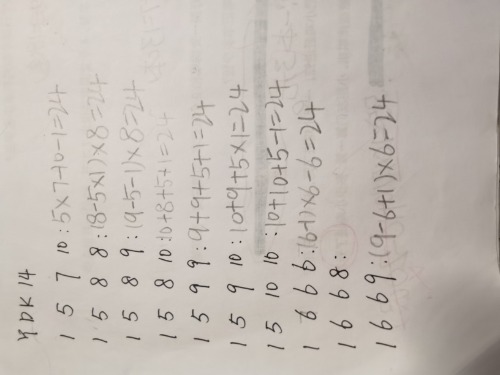 YDK14
1 5 7 10 :5×7-10-1=24
1 5 8 8 :(8-5×1)×8=24
1 5 8 9 :(9-5-1)×8=24
1 5 8 10 :10+8+5+1=24
1 5 9 9 :9+9+5+1=24
1 5 9 10 :10+9+5×1=24
1 5 10 10 :10+10+5-1=24
1 6 6 6 :(6-1)×6-6=24
1 6 6 8 :
1 6 6 9 :(9-6+1)×6=24